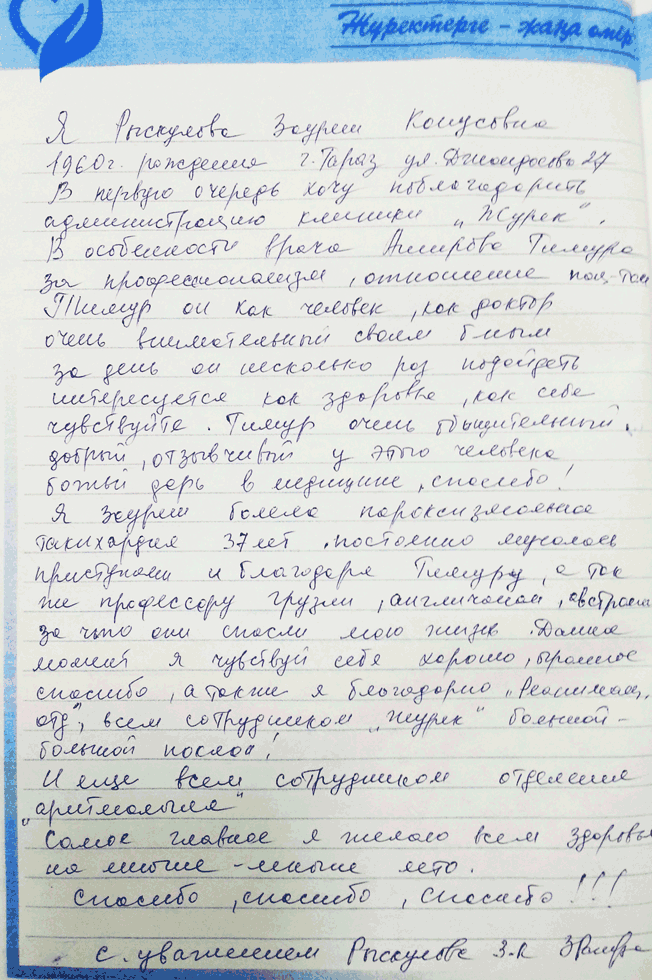 Жүректерге - жаңа өмір
Я Рыскулова Зауреш Конусовна
1960г. рождения г. Тараз ул. Джандосова 27
В первую очередь хочу поблагодарить
администрацию клиники „Журек“.
В особенности врача Амирова Тимура
за профессионализм, отношение
Тимур он как человек, как доктор
очень внимательный своем
за день он несколько раз подойдеть
интересуется как здоровье, как себе
чувствуйте. Тимур очень общительный,
добрый, отзывчивый у этого человека
божый дарь в медицине, спасибо!
Я Зауреш болела пароксизмальное
тахикардия 37 лет, постоянно мучалась
приступами и благодаря Тимуру, а так
же профессору грузии, англичанам,
за что они спасли мою жизнь. Данный
момент я чувствуй себя хорошо, огромное
спасибо, а также я благодарю „Реанимац.
отд“, всем сотрудником „Журек“ большой-
большой поклон!
И еще всем сотрудником отделения
„аритмология“
Самое главное я желаю всем здоровья
на многие - многие лета.
Спасибо, спасибо, спасибо!!!
с. уважением Рыскулова З.К